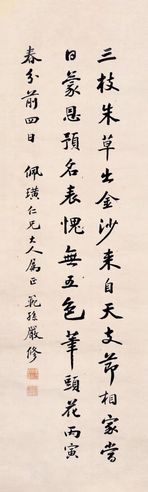 三枝朱草出金沙来自天支節相家當
日蒙恩預名表愧無五色筆頭花丙寅
春分前四日　佩璜仁兄大人属正　範孫嚴修